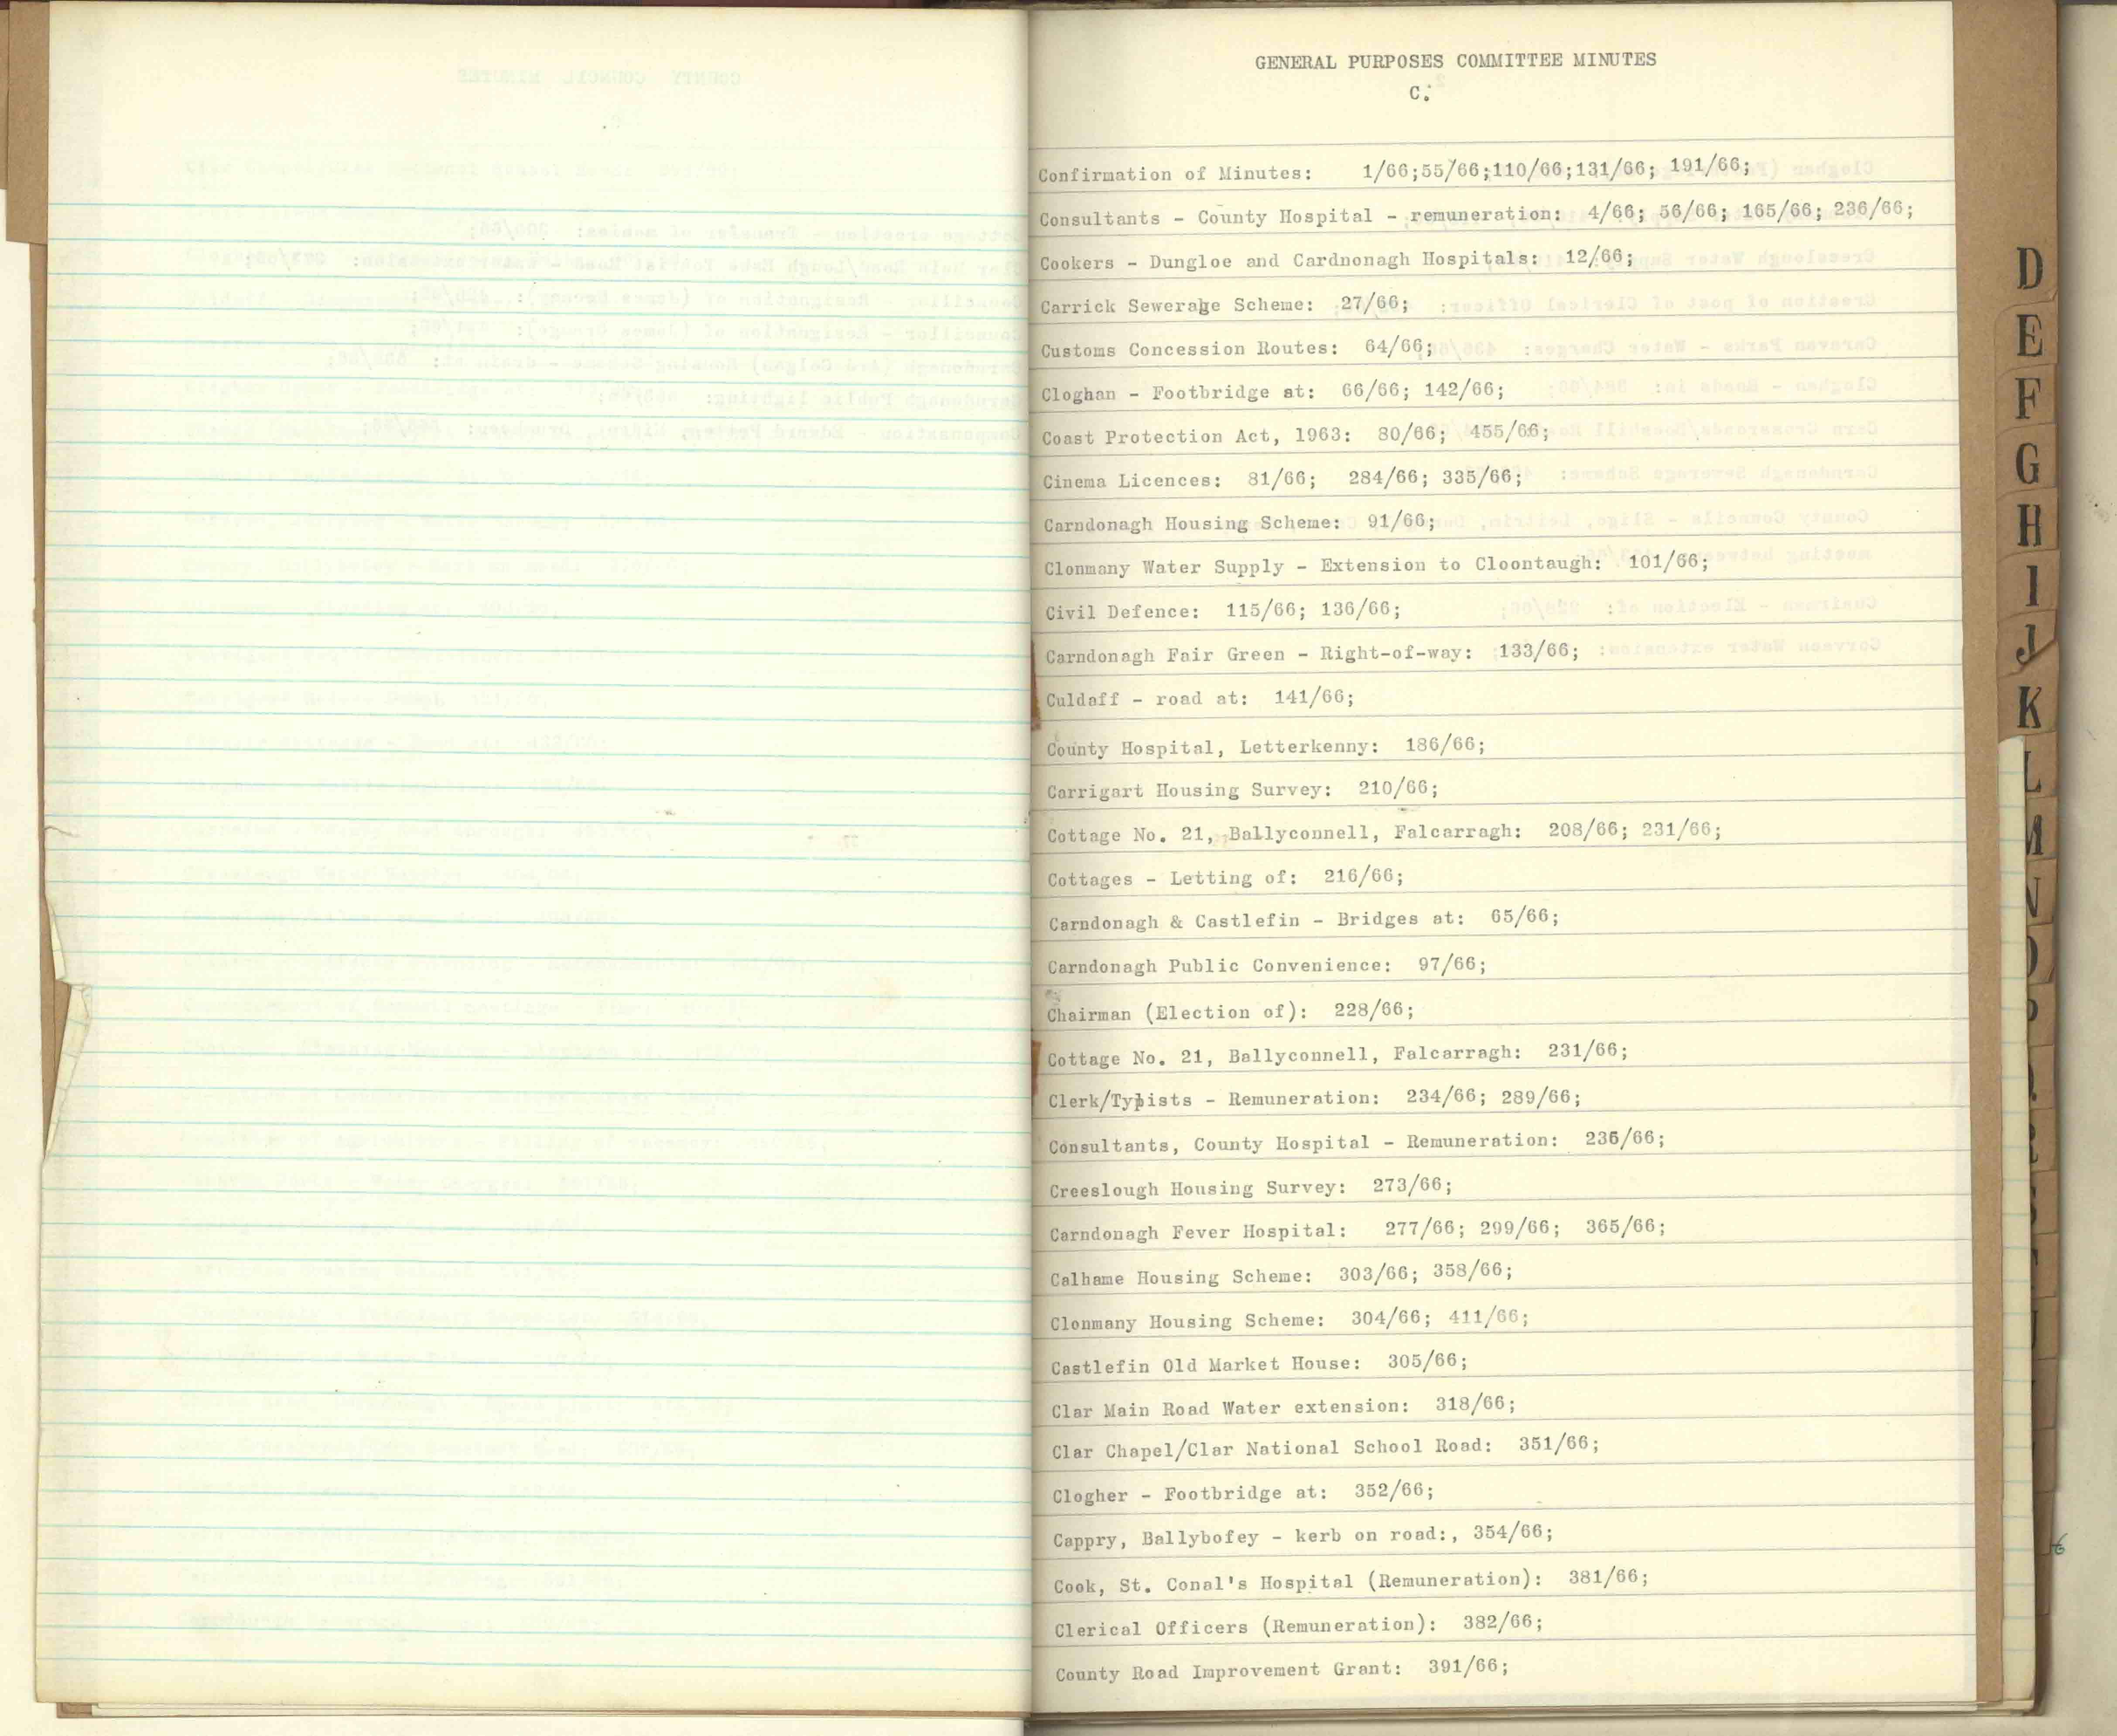 GENERAL PURPOSES COMMITTEE MINUTES
C.
Confirmation of Minutes: 1/66;55/66;110/66;131/66; 191/66;
Consultants - County Hospital - remuneration: 4/66; 56/66; 165/66; 236/66;
Cookers - Dungloe and Cardnonagh Hospitals: 12/66;
Carrick Sewerage Scheme: 27/66;
Customs Concession Routes: 64/66;
Cloghan - Footbridge at: 66/66; 142/66;
Coast Protection Act, 1963: 80/66; 455/66;
Cinema Licences: 81/66; 284/66; 335/66;
Carndonagh Housing Scheme: 91/66;
Clonmany Water Supply - Extension to Cloontaugh: 101/66;
Civil Defence: 115/66; 136/66;
Carndonagh Fair Green - Right-of-way: 133/66;
Culdaff - road at: 141/66;
County Hospital, Letterkenny: 186/66;
Carrigart Housing Survey: 210/66;
Cottage No. 21, Ballyconnell, Falcarragh: 208/66; 231/66;
Cottages - Letting of: 216/66;
Carndonagh & Castlefin - Bridges at: 65/66;
Carndonagh Public Convenience: 97/66;
Chairman (Election of): 228/66;
Cottage No. 21, Ballyconnell, Falcarragh: 231/66;
Clerk/Typists - Remuneration: 234/66; 289/66;
Consultants, County Hospital - Remuneration: 236/66;
Creeslough Housing Survey: 273/66;
Carndonagh Fever Hospital: 277/66; 299/66; 365/66;
Calhame Housing Scheme: 303/66; 358/66;
Clonmany Housing Scheme: 304/66; 411/66;
Castlefin Old Market House: 305/66;
Clar Main Road Water extension: 318/66;
Clar Chapel/Clar National School Road: 351/66;
Clogher - Footbridge at: 352/66;
Cappry, Ballybofey - kerb on road:, 354/66;
Cook, St. Conal's Hospital (Remuneration): 381/66;
Clerical Officers (Remuneration): 382/66;
County Road Improvement Grant: 391/66;
D
E
F
G
H
I
J
K
L
M
N